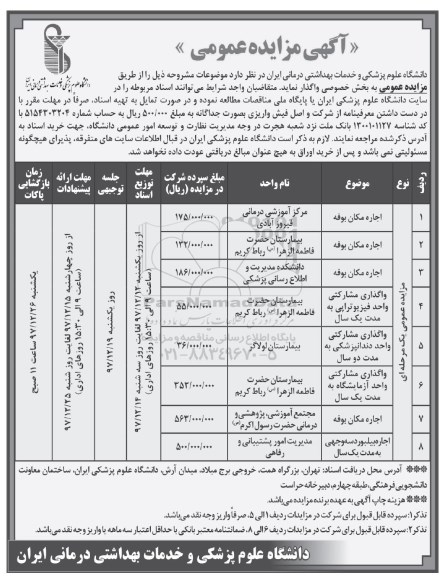 « آگهی مزایده عمومی »
دانشگاه علوم پزشکی و خدمات بهداشتی درمانی ایران در نظر دارد موضوعات مشروحه ذیل را از طریق
مزایده عمومی به بخش خصوصی واگذار نماید. متقاضیان واجد شرایط می‌توانند اسناد مربوطه را در
سایت دانشگاه علوم پزشکی ایران یا پایگاه ملی مناقصات مطالعه نموده و در صورت تمایل به تهیه اسناد، صرفاً در مهلت مقرر با
در دست داشتن معرفینامه از شرکت و اصل فیش واریزی بصورت جداگانه به مبلغ ۵۰۰/۰۰۰ ریال به حساب شماره ۵۱۵۴۳۰۳۲۰۴ با
کد شناسه ۱۳۰۰۰۱۰۱۱۲۷ بانک ملت نزد شعبه هجرت در وجه مدیریت نظارت و توسعه امور عمومی دانشگاه، جهت خرید اسناد به
آدرس ذکر شده مراجعه نمایند. لازم به ذکر است دانشگاه علوم پزشکی ایران در قبال اطلاعات سایت های متفرقه، پذیرای هیچگونه
مسئولیتی نمی باشد و پس از خرید اوراق به هیچ عنوان مبالغ دریافتی عودت داده نخواهد شد.
ردیف نوع موضوع نام واحد مبلغ سپرده شرکت در مزایده (ریال) مهلت توزیع اسناد جلسه توجیهی مهلت ارائه پیشنهادات زمان بازگشایی پاکات
مزایده عمومی یک مرحله ای
۱ اجاره مکان بوفه مرکز آموزشی درمانی فیروزآبادی ۱۷۵/۰۰۰/۰۰۰
۲ اجاره مکان بوفه بیمارستان حضرت فاطمه الزهرا (س) رباط کریم ۱۳۲/۰۰۰/۰۰۰
۳ اجاره مکان بوفه دانشکده مدیریت و اطلاع رسانی پزشکی ۱۸۶/۰۰۰/۰۰۰
۴ واگذاری مشارکتی واحد فیزیوتراپی به مدت یک سال بیمارستان حضرت فاطمه الزهرا (س) رباط کریم ۵۵/۰۰۰/۰۰۰
۵ واگذاری مشارکتی واحد دندانپزشکی به مدت دو سال بیمارستان لولاگر ۳۶/۰۰۰/۰۰۰
۶ واگذاری مشارکتی واحد آزمایشگاه به مدت یک سال بیمارستان حضرت فاطمه الزهرا (س) رباط کریم ۳۵۳/۰۰۰/۰۰۰
۷ اجاره مکان بوفه مجتمع آموزشی، پژوهشی و درمانی حضرت رسول اکرم (ص) ۵۶۳/۰۰۰/۰۰۰
۸ اجاره بیلبورد سه وجهی به مدت یک سال مدیریت امور پشتیبانی و رفاهی ۵۰۰/۰۰۰/۰۰۰
از روز یکشنبه ۹۷/۱۲/۱۲ لغایت روز سه شنبه ۹۷/۱۲/۱۴ (ساعت ۹ الی ۱۵:۳۰ روزهای اداری)
روز یکشنبه ۹۷/۱۲/۱۹
از روز چهارشنبه ۹۷/۱۲/۱۵ لغایت روز شنبه ۹۷/۱۲/۲۵ (ساعت ۹ الی ۱۵:۳۰ روزهای اداری)
یکشنبه ۹۷/۱۲/۲۶ ساعت ۱۱ صبح
۰۲۱-۸۸۳۴۹۶۷۰-۵
*** آدرس محل دریافت اسناد: تهران، بزرگراه همت، خروجی برج میلاد، میدان آرش، دانشگاه علوم پزشکی ایران، ساختمان معاونت
دانشجویی فرهنگی، طبقه چهارم، دبیرخانه حراست
*** هزینه چاپ آگهی به عهده برنده مزایده می‌باشد.
تذکر۱: سپرده قابل قبول برای شرکت در مزایدات ردیف ۱ الی ۵، صرفاً واریز وجه نقد می‌باشد.
تذکر۲: سپرده قابل قبول برای شرکت در مزایدات ردیف ۶ الی ۸، ضمانتنامه معتبر بانکی با حداقل اعتبار سه ماهه یا واریز وجه نقد می‌باشد.
دانشگاه علوم پزشکی و خدمات بهداشتی درمانی ایران